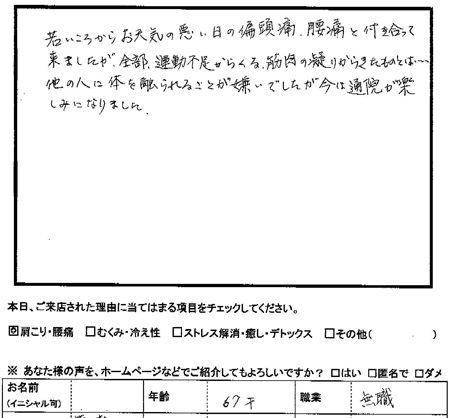 若いころからお天気の悪い日の偏頭痛、腰痛と付き合って
来ましたが、全部、運動不足からくる、筋肉の凝りからきたものとは…
他の人に体を触られることが嫌いでしたが今は通院が楽
しみになりました。
本日、ご来店された理由に当てはまる項目をチェックしてください。
☑肩こり・腰痛 □むくみ・冷え性 □ストレス解消・癒し・デトックス □その他( )
※ あなた様の声を、ホームページなどでご紹介してもよろしいですか？ □はい □匿名で □ダメ
お名前 年齢 67才 職業 無職
(イニシャル可)